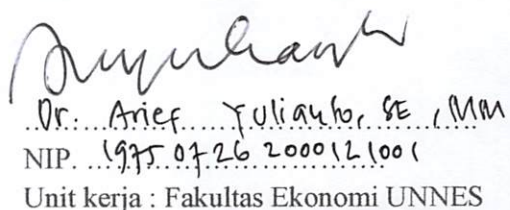 Dr. Arief Yulianto, SE, MM
NIP. 197507262000121001
Unit kerja : Fakultas Ekonomi UNNES